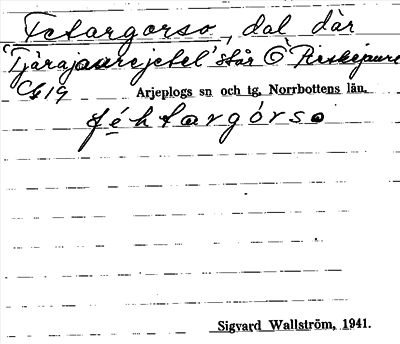 Fetargorso, dal där
'Tjärajaurejekel' står Ö
C619
Arjeplogs sn och tg. Norrbottens län.
féhtargórso
Sigvard Wallström, 1941.